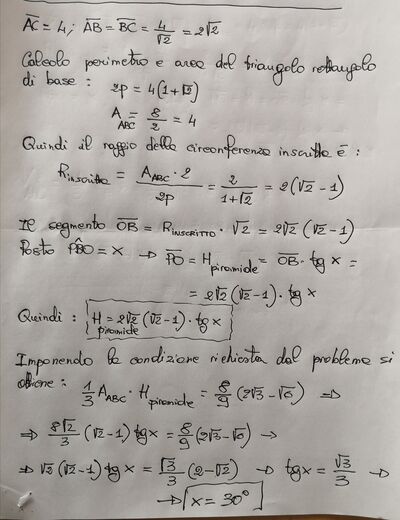 AC = 4; AB = BC = 4/√2 = 2√2
Calcolo perimetro e area del triangolo rettangolo
di base : 2p = 4(1+√2)
A_ABC = 8/2 = 4
Quindi il raggio della circonferenza inscritta è :
R_inscritta = A_ABC · 2 / 2p = 2/(1+√2) = 2(√2-1)
Il segmento OB = R_INSCRITTO · √2 = 2√2(√2-1)
Posto PBO = x → PO = H_piramide = OB · tg x =
= 2√2(√2-1) · tg x
Quindi : H_piramide = 2√2(√2-1) · tg x
Imponendo la condizione richiesta dal problema si
ottiene : 1/3 A_ABC · H_piramide = 8/9 (2√3-√6) ⇒
⇒ 8√2/3 (√2-1) tg x = 8/9 (2√3-√6) →
⇒ √2(√2-1) tg x = √3/3 (2-√2) → tg x = √3/3 →
→ x = 30°